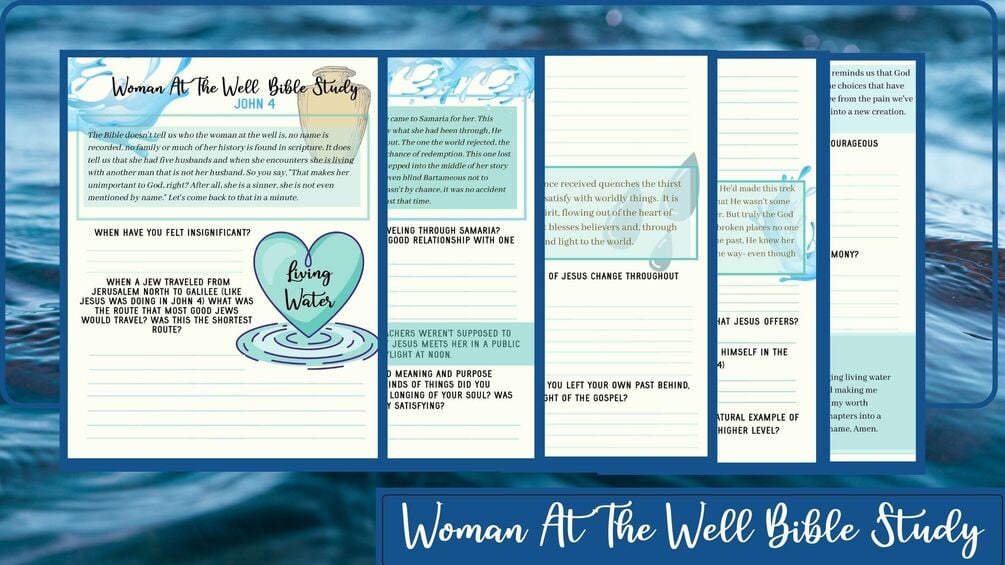 Woman At The Well Bible Study
JOHN 4
The Bible doesn't tell us who the woman at the well is, no name is
recorded, no family or much of her history is found in scripture. It does
tell us that she had five husbands and when she encounters she is living
with another man that is not her husband. So you say, "That makes her
unimportant to God, right? After all, she is a sinner, she is not even
mentioned by name." Let's come back to that in a minute.
WHEN HAVE YOU FELT INSIGNIFICANT?
Living
Water
WHEN A JEW TRAVELED FROM
JERUSALEM NORTH TO GALILEE (LIKE
JESUS WAS DOING IN JOHN 4) WHAT WAS
THE ROUTE THAT MOST GOOD JEWS
WOULD TRAVEL? WAS THIS THE SHORTEST
ROUTE?
came to Samaria for her. This
what she had been through, He
out. The one the world rejected, the
chance of redemption. This one lost
epped into the middle of her story
ven blind Bartameous not to
asn't by chance, it was no accident
st that time.
VELING THROUGH SAMARIA?
GOOD RELATIONSHIP WITH ONE
ACHERS WEREN'T SUPPOSED TO
JESUS MEETS HER IN A PUBLIC
YLIGHT AT NOON.
MEANING AND PURPOSE
INDS OF THINGS DID YOU
LONGING OF YOUR SOUL? WAS
Y SATISFYING?
nce received quenches the thirst
satisfy with worldly things. It is
irit, flowing out of the heart of
blesses believers and, through
nd light to the world.
OF JESUS CHANGE THROUGHOUT
YOU LEFT YOUR OWN PAST BEHIND,
GHT OF THE GOSPEL?
He'd made this trek
hat He wasn't some
er. But truly the God
broken places no one
he past, He knew her
he way- even though
HAT JESUS OFFERS?
HIMSELF IN THE
4)
ATURAL EXAMPLE OF
HIGHER LEVEL?
reminds us that God
he choices that have
ee from the pain we've
into a new creation.
OURAGEOUS
MONY?
ging living water
d making me
my worth
hapters into a
name, Amen.
Woman At The Well Bible Study